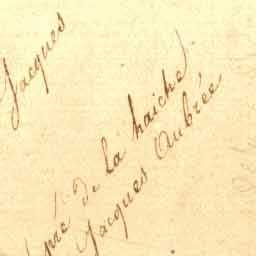 Jacques
pré de la haiche
Jacques Aubrée